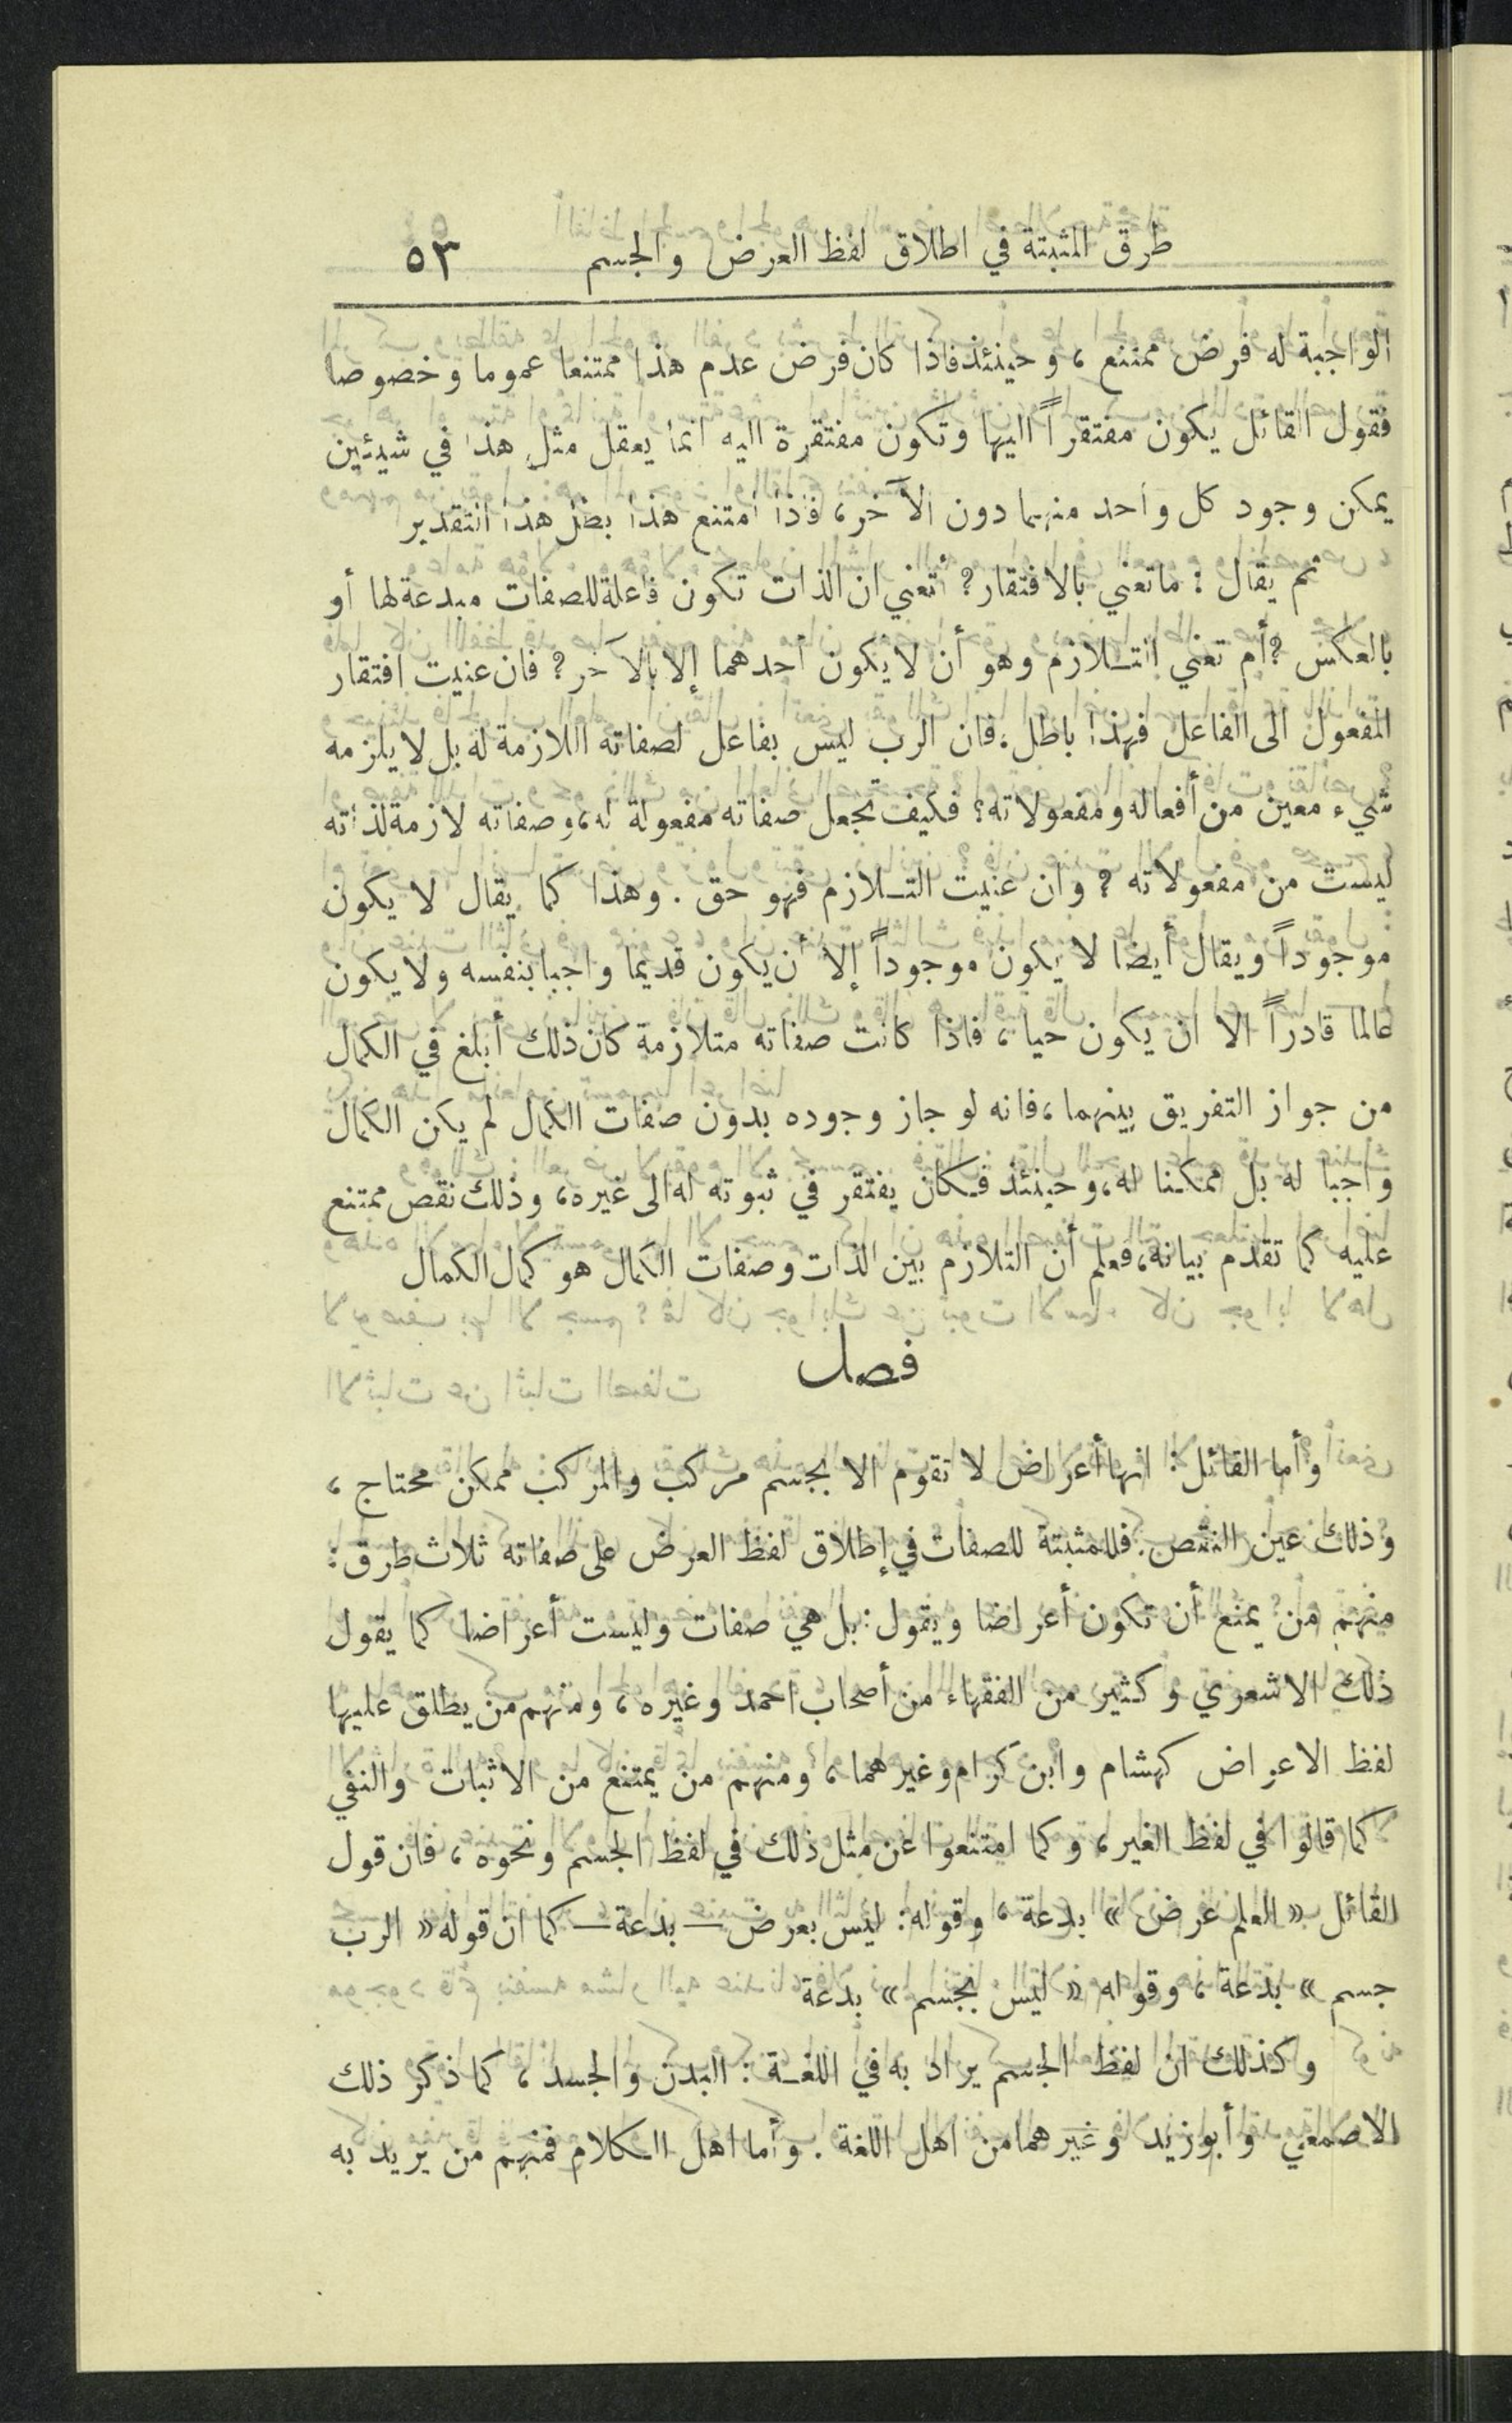 طرق المثبتة في اطلاق لفظ العرض والجسم ٥٣
الواجبة له فرض ممتنع ، وحينئذ فاذا كان فرض عدم هذا ممتنعا عموما وخصوصا
فقول القائل يكون مفتقراً اليها وتكون مفتقرة اليه انما يعقل مثل هذا في شيئين
يمكن وجود كل واحد منهما دون الآخر، فاذا امتنع هذا بطل هذا التقدير
ثم يقال : ما تعني بالافتقار؟ أتعني ان الذات تكون فاعلة للصفات مبدعة لها أو
بالعكس ؟ أم تعني التلازم وهو أن لا يكون احدهما إلا بالآخر ؟ فان عنيت افتقار
المفعول الى الفاعل فهذا باطل. فان الرب ليس بفاعل لصفاته اللازمة له بل لا يلزمه
شيء معين من أفعاله ومفعولاته؟ فكيف تجعل صفاته مفعولة له، وصفاته لازمة لذاته
ليست من مفعولاته ؟ وان عنيت التلازم فهو حق . وهذا كما يقال لا يكون
موجوداً ويقال أيضا لا يكون موجوداً إلا أن يكون قديما واجبا بنفسه ولا يكون
عالما قادراً الا ان يكون حيا ، فاذا كانت صفاته متلازمة كان ذلك أبلغ في الكمال
من جواز التفريق بينهما ، فانه لو جاز وجوده بدون صفات الكمال لم يكن الكمال
واجبا له بل ممكنا له، وحينئذ فكان يفتقر في ثبوته له الى غيره، وذلك نقص ممتنع
عليه كما تقدم بيانه، فعلم أن التلازم بين الذات وصفات الكمال هو كمال الكمال
فصل
وأما القائل : انها أعراض لا تقوم الا بجسم مركب والمركب ممكن محتاج ،
وذلك عين النقص. فللمثبتة للصفات في إطلاق لفظ العرض على صفاته ثلاث طرق :
منهم من يمنع أن تكون أعراضا ويقول : بل هي صفات وليست أعراضا كما يقول
ذلك الاشعري وكثير من الفقهاء من أصحاب احمد وغيره ، ومنهم من يطلق عليها
لفظ الاعراض كهشام وابن كرام وغيرهما ، ومنهم من يمتنع من الاثبات والنفي
كما قالوا في لفظ الغير ، وكما امتنعوا عن مثل ذلك في لفظ الجسم ونحوه ، فان قول
القائل « العلم عرض » بدعة ، وقوله : ليس بعرض — بدعة — كما ان قوله « الرب
جسم » بدعة ، وقوله « ليس بجسم » بدعة
وكذلك ان لفظ الجسم يراد به في اللغة : البدن والجسد ، كما ذكر ذلك
الاصمعي وأبو زيد وغيرهما من اهل اللغة . وأما اهل الكلام فمنهم من يريد به